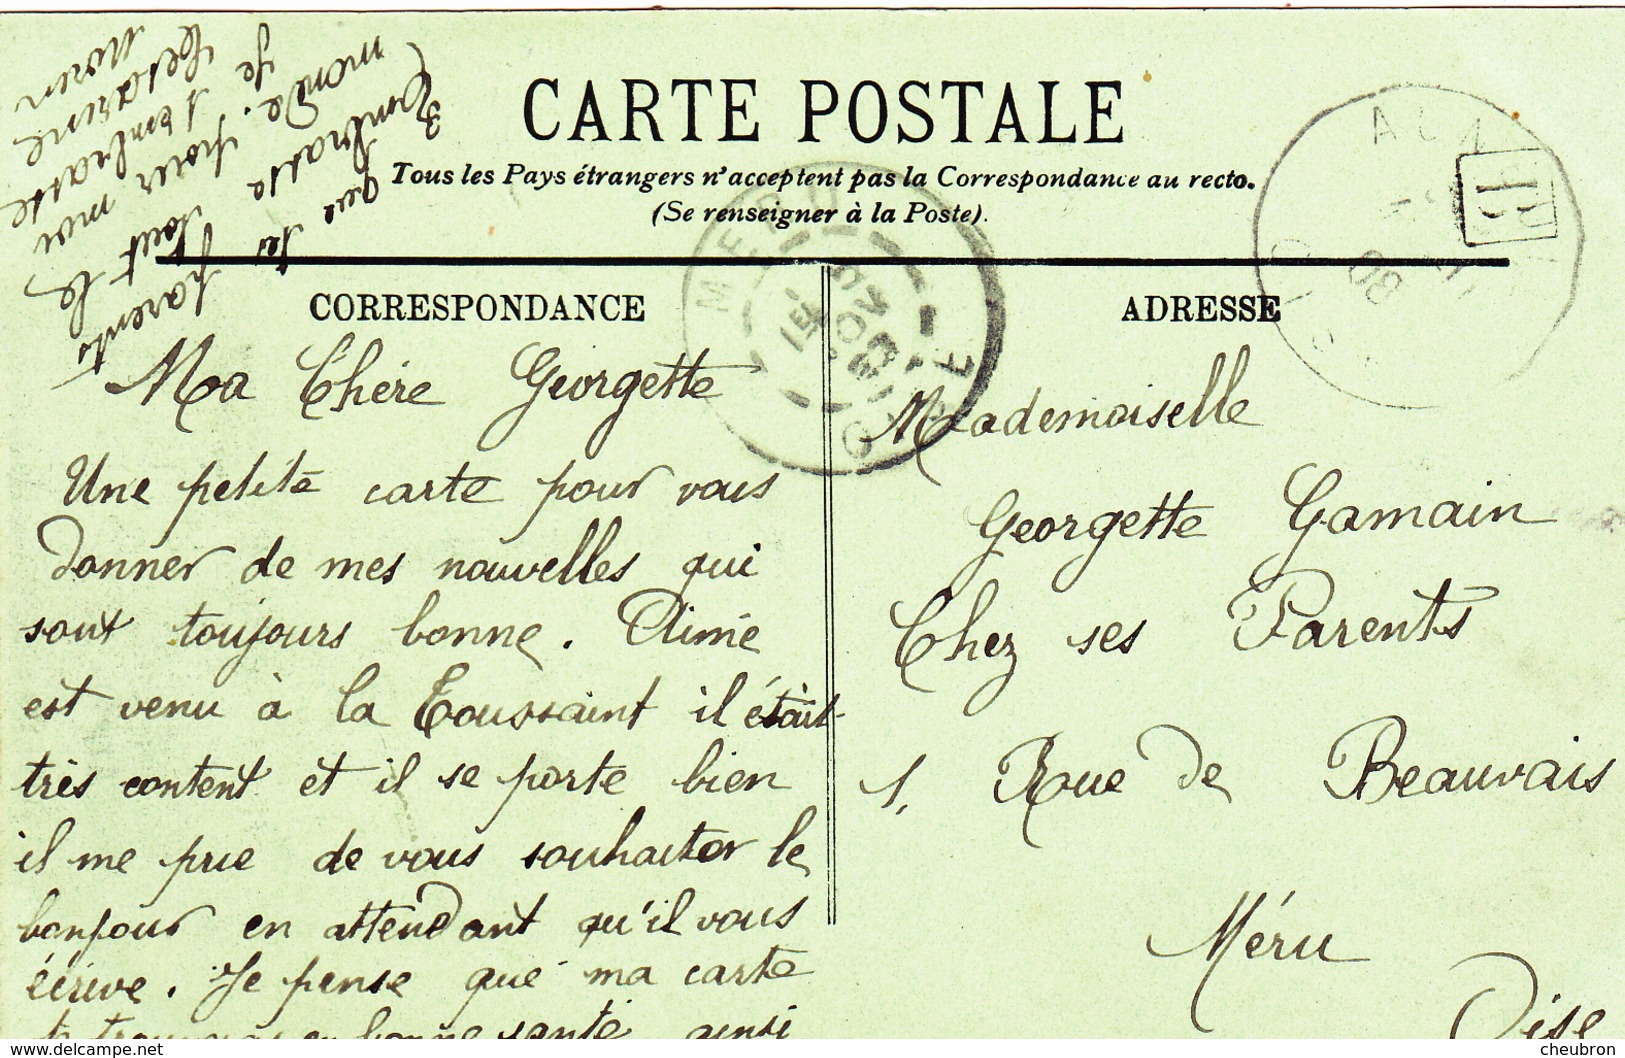 CARTE POSTALE
Tous les Pays étrangers n'acceptent pas la Correspondance au recto.
(Se renseigner à la Poste).
CORRESPONDANCE
Ma Chére Georgette
Une petite carte pour vous
donner de mes nouvelles qui
sont toujours bonne. Aimé
est venu à la Toussaint il était
très content et il se porte bien
il me prie de vous souhaiter le
bonjour en attendant qu'il vous
écrive. Je pense que ma carte
te trouveras en bonne santé ainsi
que tes parents
Embrasse tout le
monde. pour moi
Je t'embrasse
Cesarine
Noren
ADRESSE
Mademoiselle
Georgette Gamain
Chez ses Parents
1, Rue de Beauvais
Méru
Oise
MERU
OISE
cheubron.com